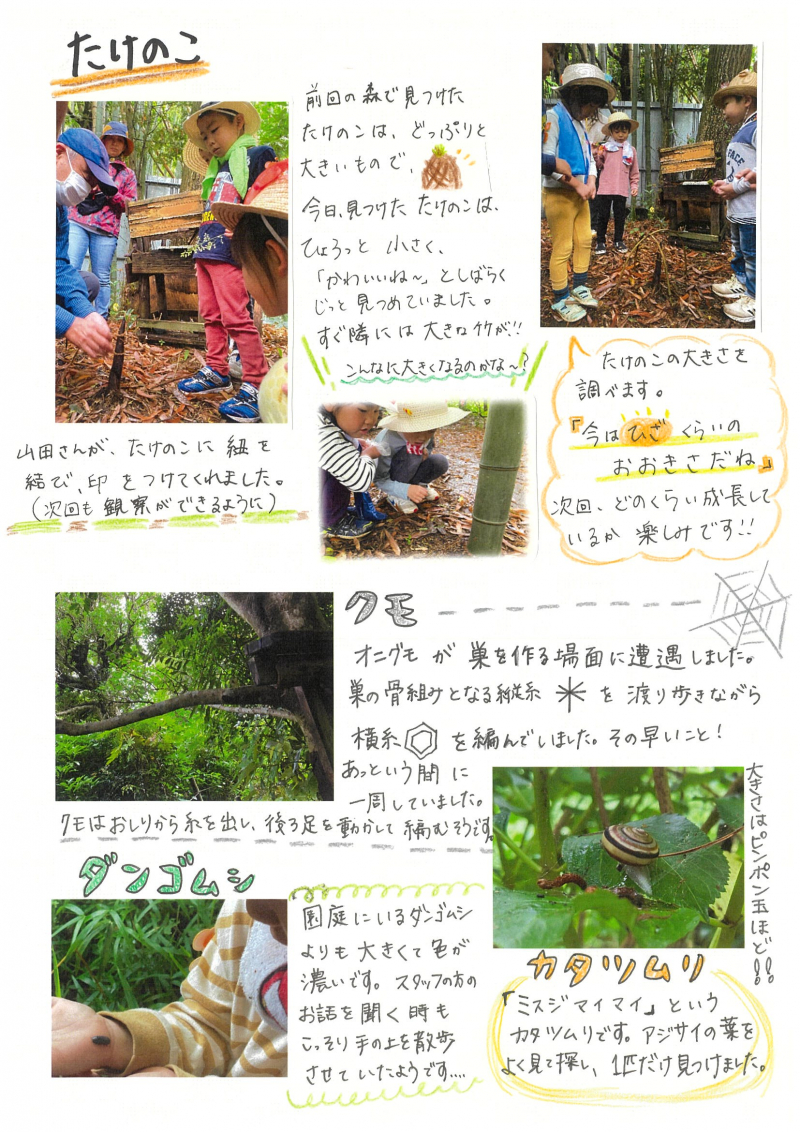 たけのこ
前回の森で見つけた
たけのこは、どっぷりと
大きいもので、
今日、見つけた たけのこは、
ひょろっと 小さく、
「かわいいね〜」としばらく
じっと 見つめていました。
すぐ隣には 大きな竹が!!
こんなに大きくなるのかな〜?
山田さんが、たけのこに 紐を
結び、印 をつけてくれました。
(次回も 観察ができるように)
たけのこの大きさを
調べます。
『今は ひざ くらいの
おおきさだね』
次回、どのくらい成長して
いるか 楽しみです!!
クモ
オニグモ が 巣を作る場面に遭遇しました。
巣の骨組みとなる縦糸 を 渡り歩きながら
横糸 を編んでいました。その早いこと!
あっという間に
一周していました。
クモはおしりから糸を出し、後ろ足を動かして 編むそうです。
ダンゴムシ
園庭にいるダンゴムシ
よりも 大きくて 色が
濃いです。スタッフの方の
お話を聞く時も
こっそり 手の上を散歩
させていたようです....
大きさはピンポン玉ほど!!
カタツムリ
「ミスジマイマイ」という
カタツムリです。アジサイの葉を
よく見て探し、1匹だけ見つけました。